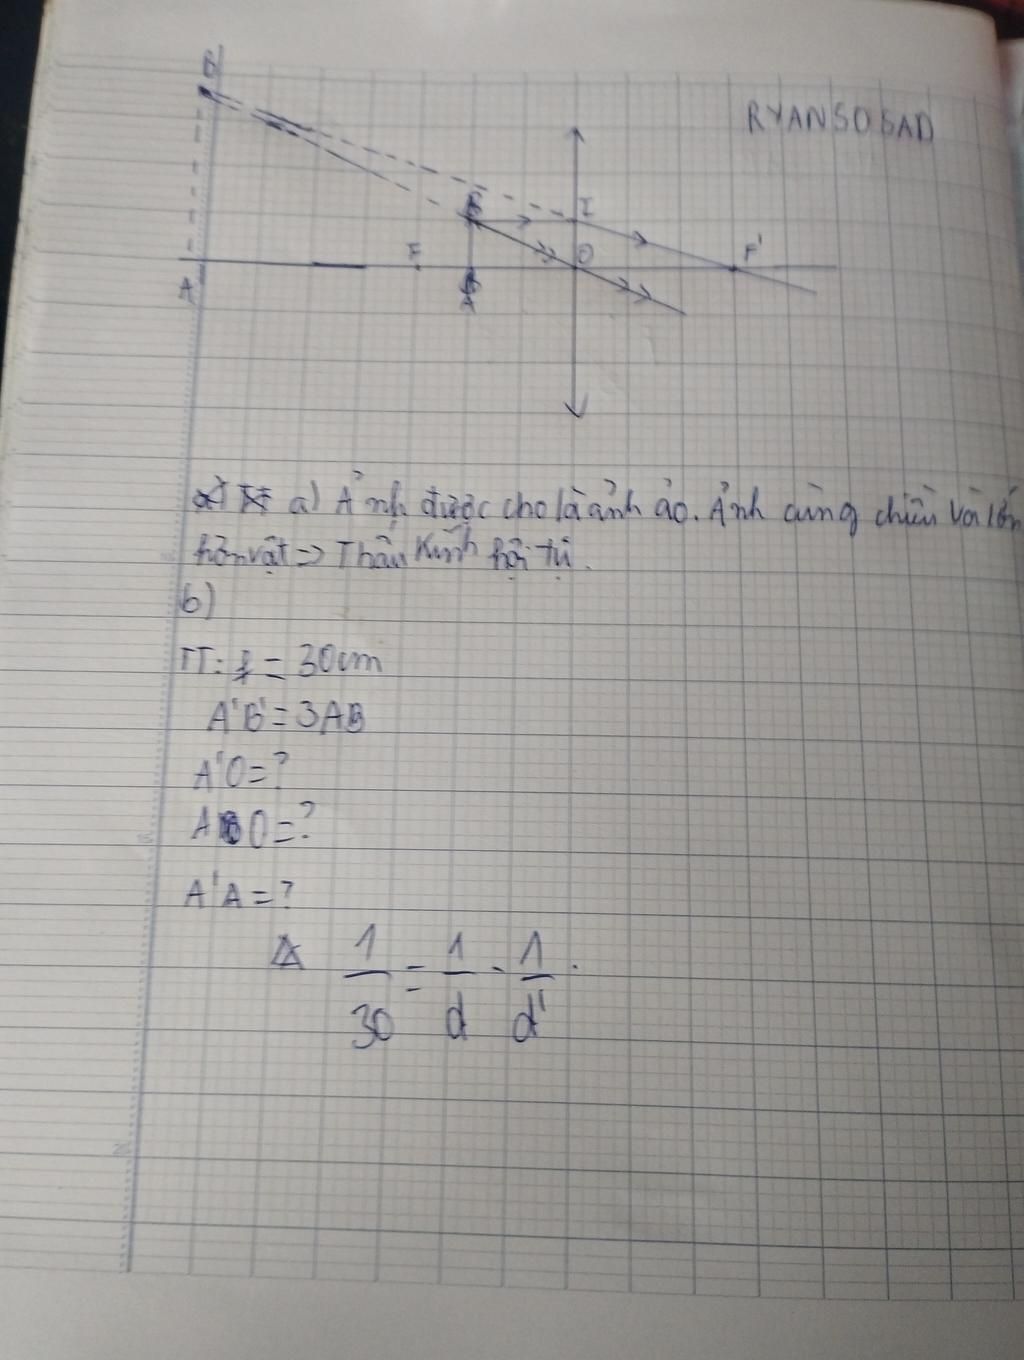 B'
RYANSOSAD
B
I
F
O
F'
A'
A
a) Ảnh được cho là ảnh ảo. Ảnh cùng chiều và lớn
hơn vật => Thấu Kính hội tụ.
b)
TT: f = 30cm
A'B' = 3AB
A'O = ?
AO = ?
A'A = ?
1/30 = 1/d - 1/d'.